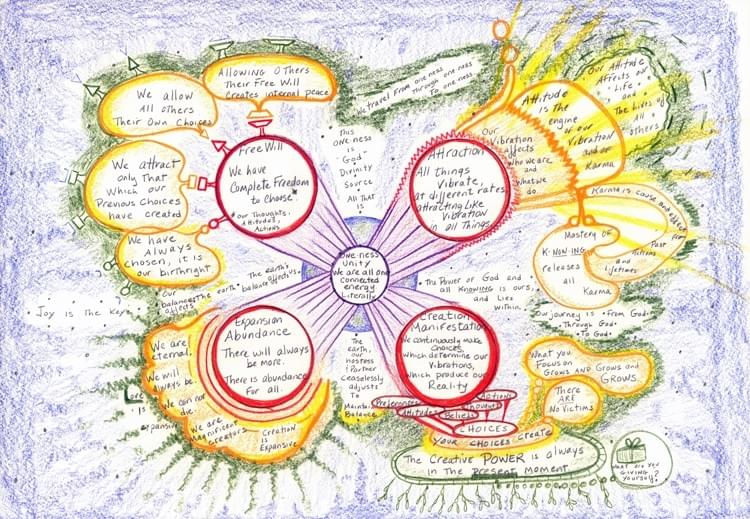 We allow
All others
Their Own Choices
ALLOWING OTHERS
Their Free Will
Creates internal peace
We travel From one ness
Through one ness
To one ness
Our Attitude
Affects our
Life
and
The Lives of
All
others
Attitude
is the
engine
of our
Vibration
and of
Karma
We attract
only That
Which our
Previous Choices
have created
Free Will
We have
Complete Freedom
To Choose!
*our Thoughts,
Attitudes,
Actions
This
ONE-ness
is
God
Divinity
Source
All That
is
Attraction
All Things
Vibrate,
at different rates
attracting Like
Vibration
in all Things
Our
Vibration
affects
Who we are
and
What we
do
Karma is cause and effect
Past
Actions
and
Lifetimes
We have
Always
chosen, it is
our birthright
Mastery OF
K-NOW-ING
releases
all
Karma
One-ness
Unity
We are all one
connected
energy
Literally
Our
balance affects
The earth
The earth's
balance affects us
The Power of God and
all KNOWING is ours,
and Lies
within.
Our journey is From God
Through God
To God
Joy is The Key
Expansion
Abundance
There will always
be more.
There is abundance
For all.
We are
eternal,
We will
always be.
We can not
die.
We are
Magnificent
Creators
Creation
is
Expansive
Love
is
expansive
The
earth,
our
hostess
Partner
Ceaselessly
adjusts
To
Maintain
Balance
Creation
Manifestation
We continuously make
choices
which determine our
Vibrations,
which produce our
Reality
Preferences
Actions
Thoughts
Attitudes
Beliefs
CHOICES
YOUR CHOICES Create
What You
Focus on
Grows AND Grows and
Grows
There
ARE
No Victims
The Creative POWER is always
in the present moment
What are you
GIVING
Yourself?